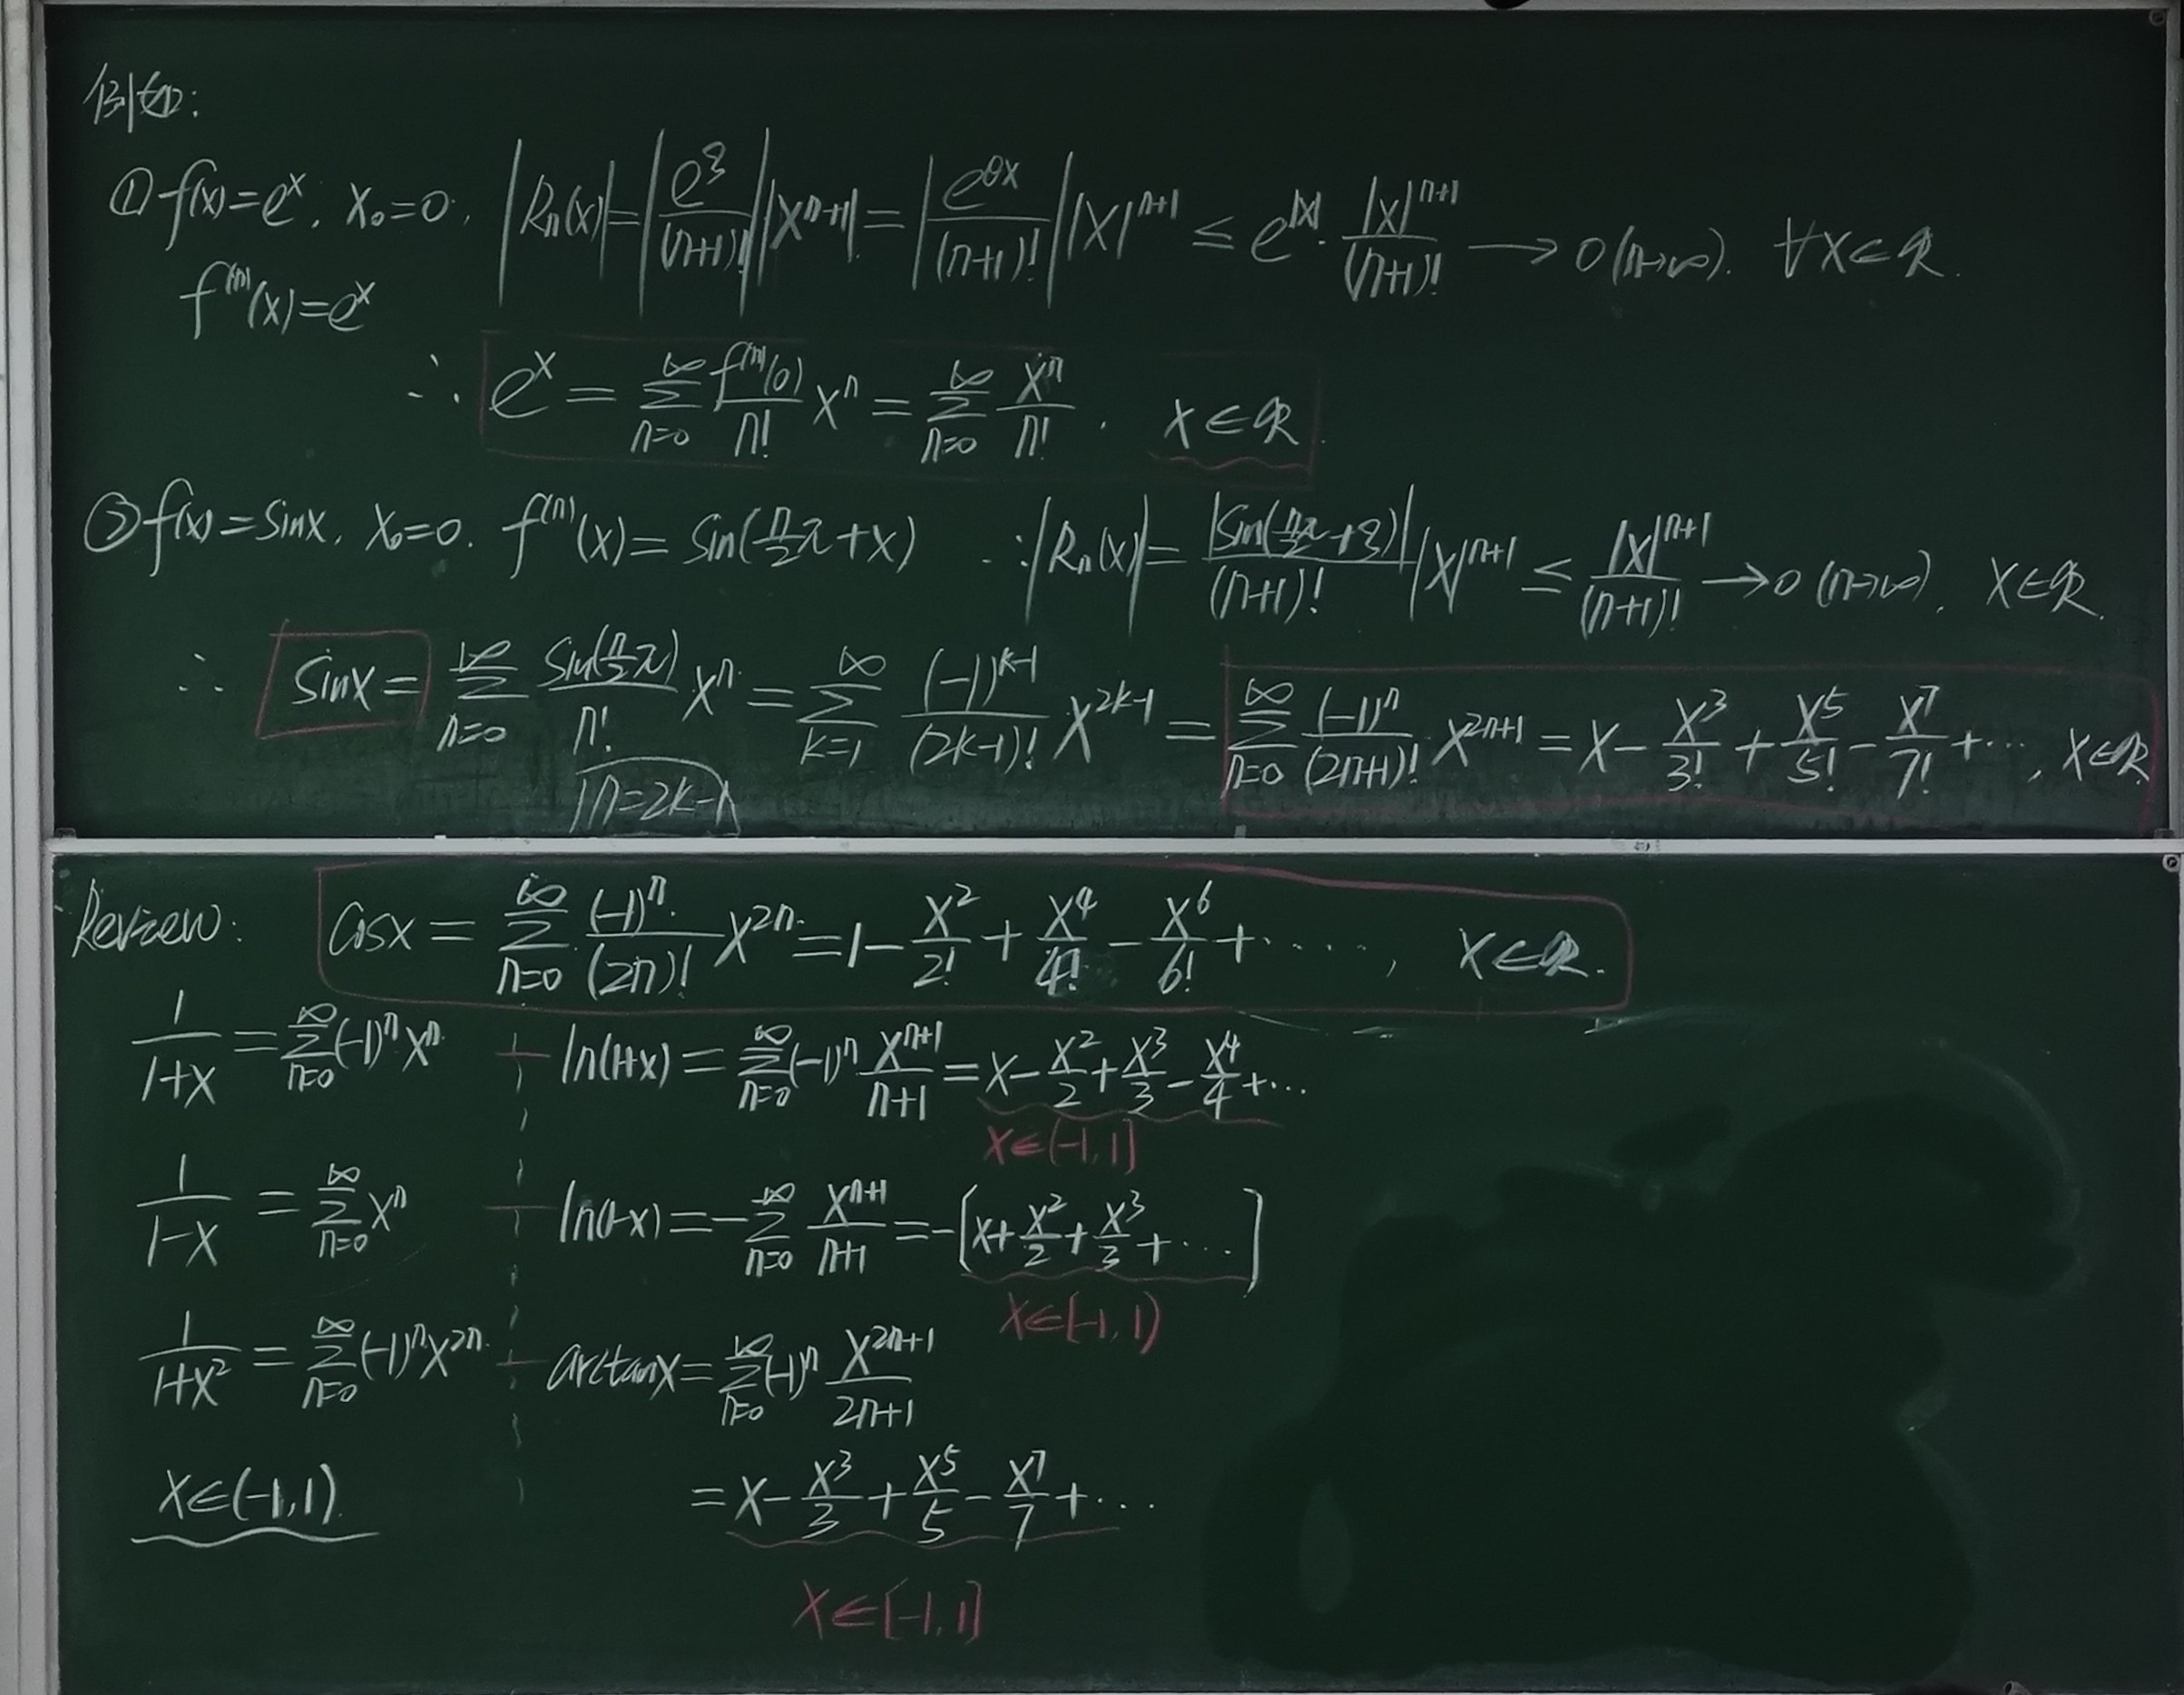 例如:
① f(x)=e^x, x₀=0, |Rₙ(x)|=|e^ξ/(n+1)!||x^{n+1}|=|e^{θx}/(n+1)!||x|^{n+1} ≤ e^{|x|}·|x|^{n+1}/(n+1)! ⟶ 0(n→∞). ∀x∈R.
f^{(n)}(x)=e^x
∴ e^x = ∑_{n=0}^{∞} f^{(n)}(0)/n! x^n = ∑_{n=0}^{∞} x^n/n! , x∈R.
② f(x)=sinx, x₀=0. f^{(n)}(x)=sin(n/2 π+x) ∵ |Rₙ(x)|=|sin(n/2 π+ξ)|/(n+1)! |x|^{n+1} ≤ |x|^{n+1}/(n+1)! ⟶ 0 (n→∞), x∈R.
∴ sinx = ∑_{n=0}^{∞} sin(n/2 π)/n! x^n = ∑_{k=1}^{∞} (-1)^{k-1}/(2k-1)! x^{2k-1} = ∑_{n=0}^{∞} (-1)^n/(2n+1)! x^{2n+1} = x - x^3/3! + x^5/5! - x^7/7! + ⋯ , x∈R
n=2k-1
Review: cosx = ∑_{n=0}^{∞} (-1)^n/(2n)! x^{2n} = 1 - x^2/2! + x^4/4! - x^6/6! + ⋯⋯, x∈R.
1/(1+x) = ∑_{n=0}^{∞} (-1)^n x^n ln(1+x) = ∑_{n=0}^{∞} (-1)^n x^{n+1}/(n+1) = x - x^2/2 + x^3/3 - x^4/4 + ⋯
x∈(-1,1]
1/(1-x) = ∑_{n=0}^{∞} x^n ln(1-x) = -∑_{n=0}^{∞} x^{n+1}/(n+1) = -[x + x^2/2 + x^3/3 + ⋯]
x∈[-1,1)
1/(1+x^2) = ∑_{n=0}^{∞} (-1)^n x^{2n} arctanx = ∑_{n=0}^{∞} (-1)^n x^{2n+1}/(2n+1)
x∈(-1,1). = x - x^3/3 + x^5/5 - x^7/7 + ⋯
x∈[-1,1]